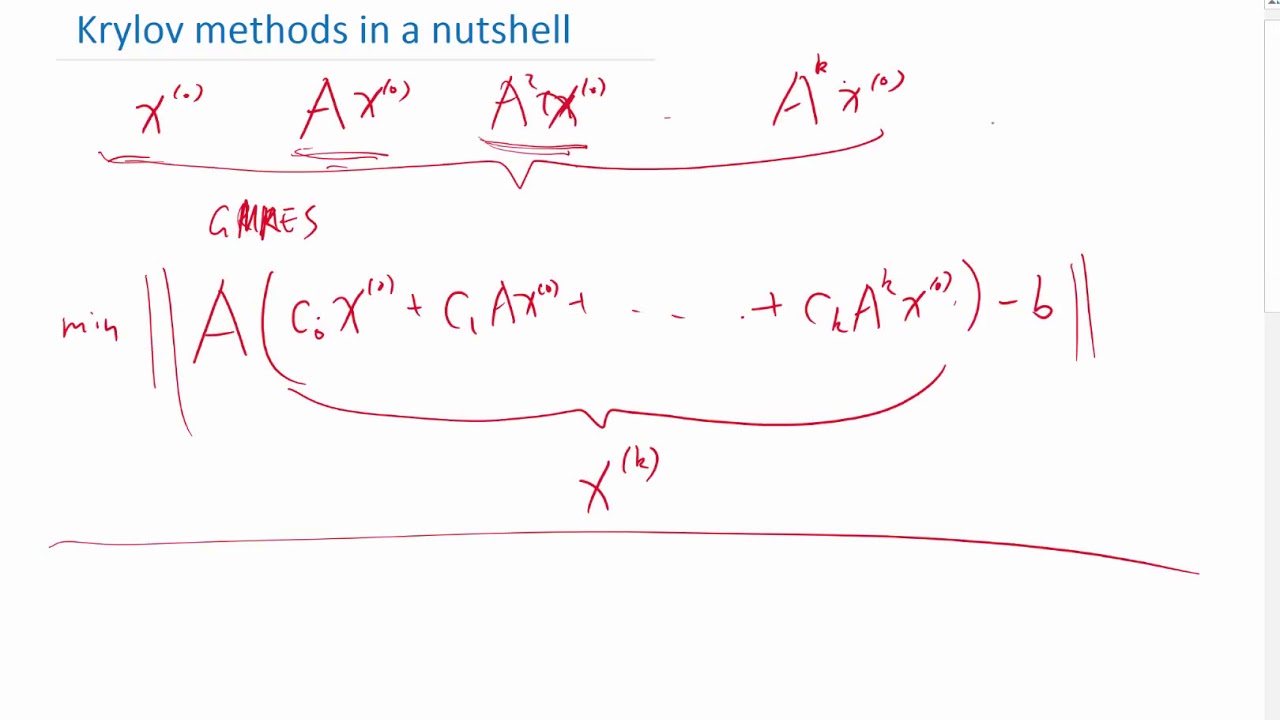 Krylov methods in a nutshell
x⁽⁰⁾ Ax⁽⁰⁾ A²x⁽⁰⁾ - Aᵏx⁽⁰⁾
GMRES
min ‖A(c₀x⁽⁰⁾ + c₁Ax⁽⁰⁾ + ..... + cₖAᵏx⁽⁰⁾) - b‖
x⁽ᵏ⁾